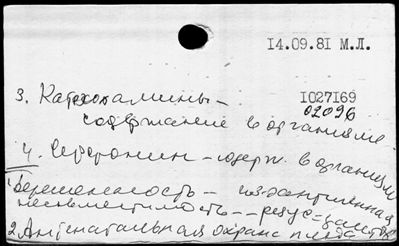 14.09.81 М.Л.
3. Катехоламины -
1027169
02096
содержание в организме
4. Серотонин - содерж. в организме
1. Беременность - из-антигенная
несовместимость -- резус-
2. Антенатальная охрана плода